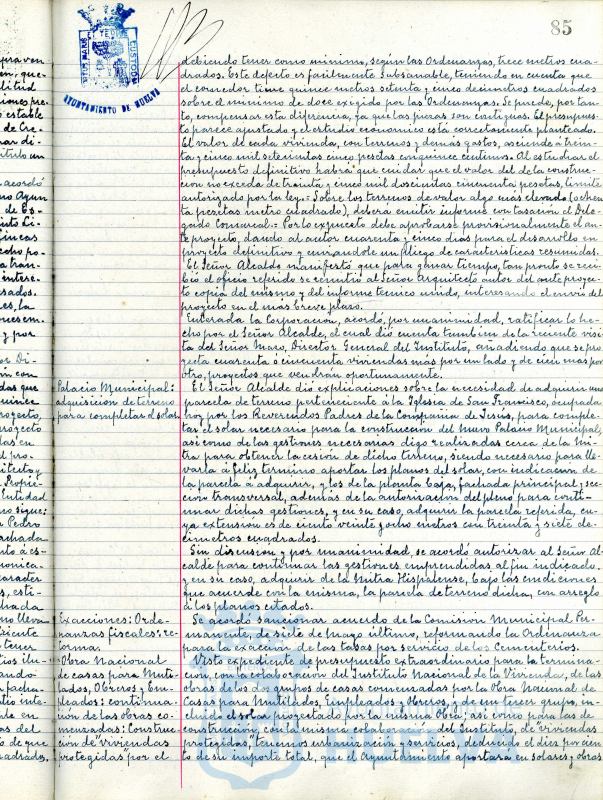 85
AYUNTAMIENTO DE HUELVA
debiendo tener como mínimo, según las Ordenanzas, trece metros cua-
drados. Este defecto es facilmente subsanable, teniendo en cuenta que
el comedor tiene quince metros setenta y cinco decímetros cuadrados
sobre el mínimo de doce exigido por las Ordenanzas. Se puede, por tan-
to, compensar esta diferencia, ya que las piezas son contiguas. El presupues-
to parece ajustado y el estudio económico está correctamente planteado.
El valor de cada vivienda, con terrenos y demás gastos, asciende á trein-
ta y cinco mil setecientas cinco pesetas con quince centimos. Al estudiar el
presupuesto definitivo habrá que cuidar que el valor del de la construc-
cion no exceda de treinta y cinco mil doscientas cincuenta pesetas, limite
autorizado por la ley. = Sobre los terrenos de valor algo más elevado (ochen-
ta pesetas metro cuadrado), deberá emitir informe con tasacion el Dele-
gado Comarcal. = Por lo expuesto debe aprobarse provisionalmente el an-
te proyecto, dando al autor cuarenta y cinco dias para el desarrollo en
proyecto definitivo y enviandole un pliego de caracteristicas resumidas.
El Señor Alcalde manifestó que para ganar tiempo, tan pronto se reci-
bió el oficio referido se remitió al Señor Arquitecto autor del ante proyec-
to copia del mismo y del informe tecnico unido, interesando el envio del
proyecto en el mas breve plazo.
Enterada la Corporación, acordó, por unanimidad, ratificar lo he-
cho por el Señor Alcalde, el cual dió cuenta tambien de la reciente visi-
ta del Señor Mazo, Director General del Instituto, añadiendo que se pro-
yecta cuarenta ó cincuenta viviendas más por un lado y de cien mas por
otro, proyectos que vendran oportunamente.
Palacio Municipal:
adquisicion de terreno
para completar el solar.
El Señor Alcalde dió explicaciones sobre la necesidad de adquirir una
parcela de terreno perteneciente á la Iglesia de San Francisco, ocupada
hoy por los Reverendos Padres de la Compañia de Jesús, para comple-
tar el solar necesario para la construcción del Nuevo Palacio Municipal,
asi como de las gestiones necesarias digo realizadas cerca de la Mi-
tra para obtener la cesión de dicho terreno, siendo necesario para lle-
varla á feliz termino aportar los planos del solar, con indicación de
la parcela á adquirir, y los de la planta baja, fachada principal y sec-
cion transversal, además de la autorizacion del pleno para conti-
nuar dichas gestiones, y en su caso, adquirir la parcela referida, cu-
ya extensión es de ciento veinte y ocho metros con treinta y siete de-
cimetros cuadrados.
Sin discusion y por unanimidad, se acordó autorizar al Señor Al-
calde para continuar las gestiones emprendidas al fin indicado.
y en su caso, adquirir de la Mitra Hispalense, bajo las condiciones
que acuerde con la misma, la parcela de terreno dicha, con arreglo
á los planos citados.
Exacciones: Orde-
nanzas fiscales: re-
formas
Se acordó sancionar acuerdo de la Comisión Municipal Per-
manente, de siete de Marzo último, reformando la Ordenanza
para la exacción de las tasas por servicio de los Cementerios.
Obra Nacional
de casas para Muti-
lados, Obreros y Em-
pleados: continua-
cion de las obras co-
menzadas: Construc-
cion de "viviendas
protegidas" por el
Visto expediente de presupuesto extraordinario para la termina-
cion, con la colaboracion del Instituto Nacional de la Vivienda, de las
obras de los dos grupos de casas comenzadas por la Obra Nacional de
Casas para Mutilados, Empleados y Obreros, y de un tercer grupo, in-
cluido el solar proyectado por la misma Obra; asi como para las de
construcción, con la misma colaboracion del Instituto, de "viviendas
protegidas, terrenos urbanización y servicios, deducido el diez por cien-
to de su importe total, que el Ayuntamiento aportará en solares y obras